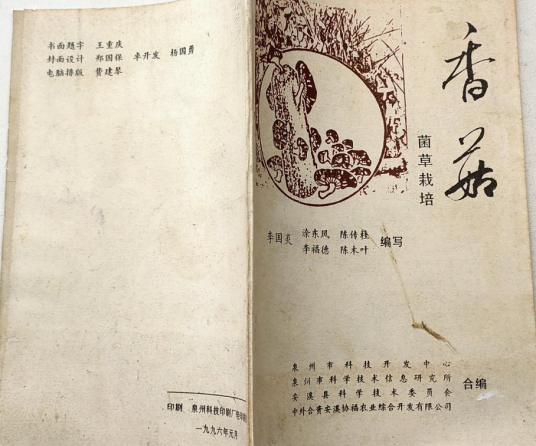 书面题字 王重庆
封面设计 郑国保 卓开发 杨国勇
电脑排版 黄建琴
印刷 泉州科技印刷厂
一九九六年元月
香菇
菌草栽培
李国炎 涂东凤 陈传程
李福德 陈木叶 编写
泉州市科技开发中心
泉州市科学技术信息研究所
安溪县科学技术委员会
中外合资安溪协福农业综合开发有限公司
合编